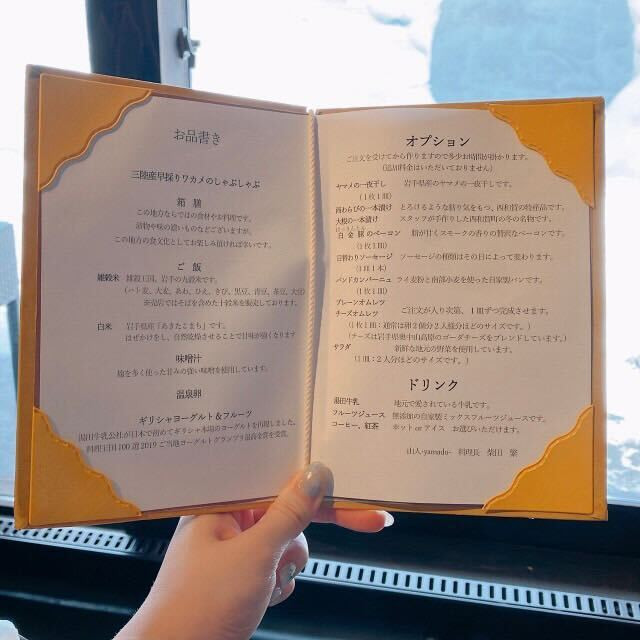 お品書き
三陸産早採りワカメのしゃぶしゃぶ
箱膳
この地方ならではの食材やお料理です。
漬物や味の濃いものなどございますが、
この地方の食文化としてお楽しみ頂ければ幸いです。
ご飯
雑穀米 雑穀王国、岩手の九穀米です。
（ハト麦、大麦、あわ、ひえ、きび、黒豆、青豆、茶豆、大豆）
※売店ではそばを含めた十穀米を販売しております。
白米 岩手県産「あきたこまち」です。
はぜかけをし、自然乾燥させることで甘味が強くなります
味噌汁
麹を多く使った甘みの強い味噌を使用しています。
温泉卵
ギリシャヨーグルト＆フルーツ
湯田牛乳公社が日本で初めてギリシャ本場のヨーグルトを再現しました。
料理王国100選2019ご当地ヨーグルトグランプリ最高金賞を受賞。
オプション
ご注文を受けてから作りますので多少お時間が掛かります。
（追加料金はいただいておりません）
ヤマメの一夜干し 岩手県産のヤマメの一夜干しです。
（1枚1皿）
西わらびの一本漬け とろけるような粘り気をもつ、西和賀の特産品です。
大根の一本漬け スタッフが手作りした西和賀町の冬の名物です。
白金豚のベーコン 脂が甘くスモークの香りの贅沢なベーコンです。
（1枚1皿）
日替わりソーセージ ソーセージの種類はその日によって変わります。
（1皿1本）
パンドカンパーニュ ライ麦粉と南部小麦を使った自家製パンです。
（1枚1皿）
プレーンオムレツ
チーズオムレツ ご注文が入り次第、1皿ずつ完成させます。
（1枚1皿：通常は卵2個分2人様分ほどのサイズです。）
（チーズは岩手県奥中山高原のゴーダチーズをブレンドしています。）
サラダ 新鮮な地元の野菜を使用しています。
（1皿：2人分ほどのサイズです。）
ドリンク
湯田牛乳 地元で愛されている牛乳です。
フルーツジュース 無添加の自家製ミックスフルーツジュースです。
コーヒー、紅茶 ホット or アイス お選びいただけます。
山人-yamado- 料理長 柴田 繁